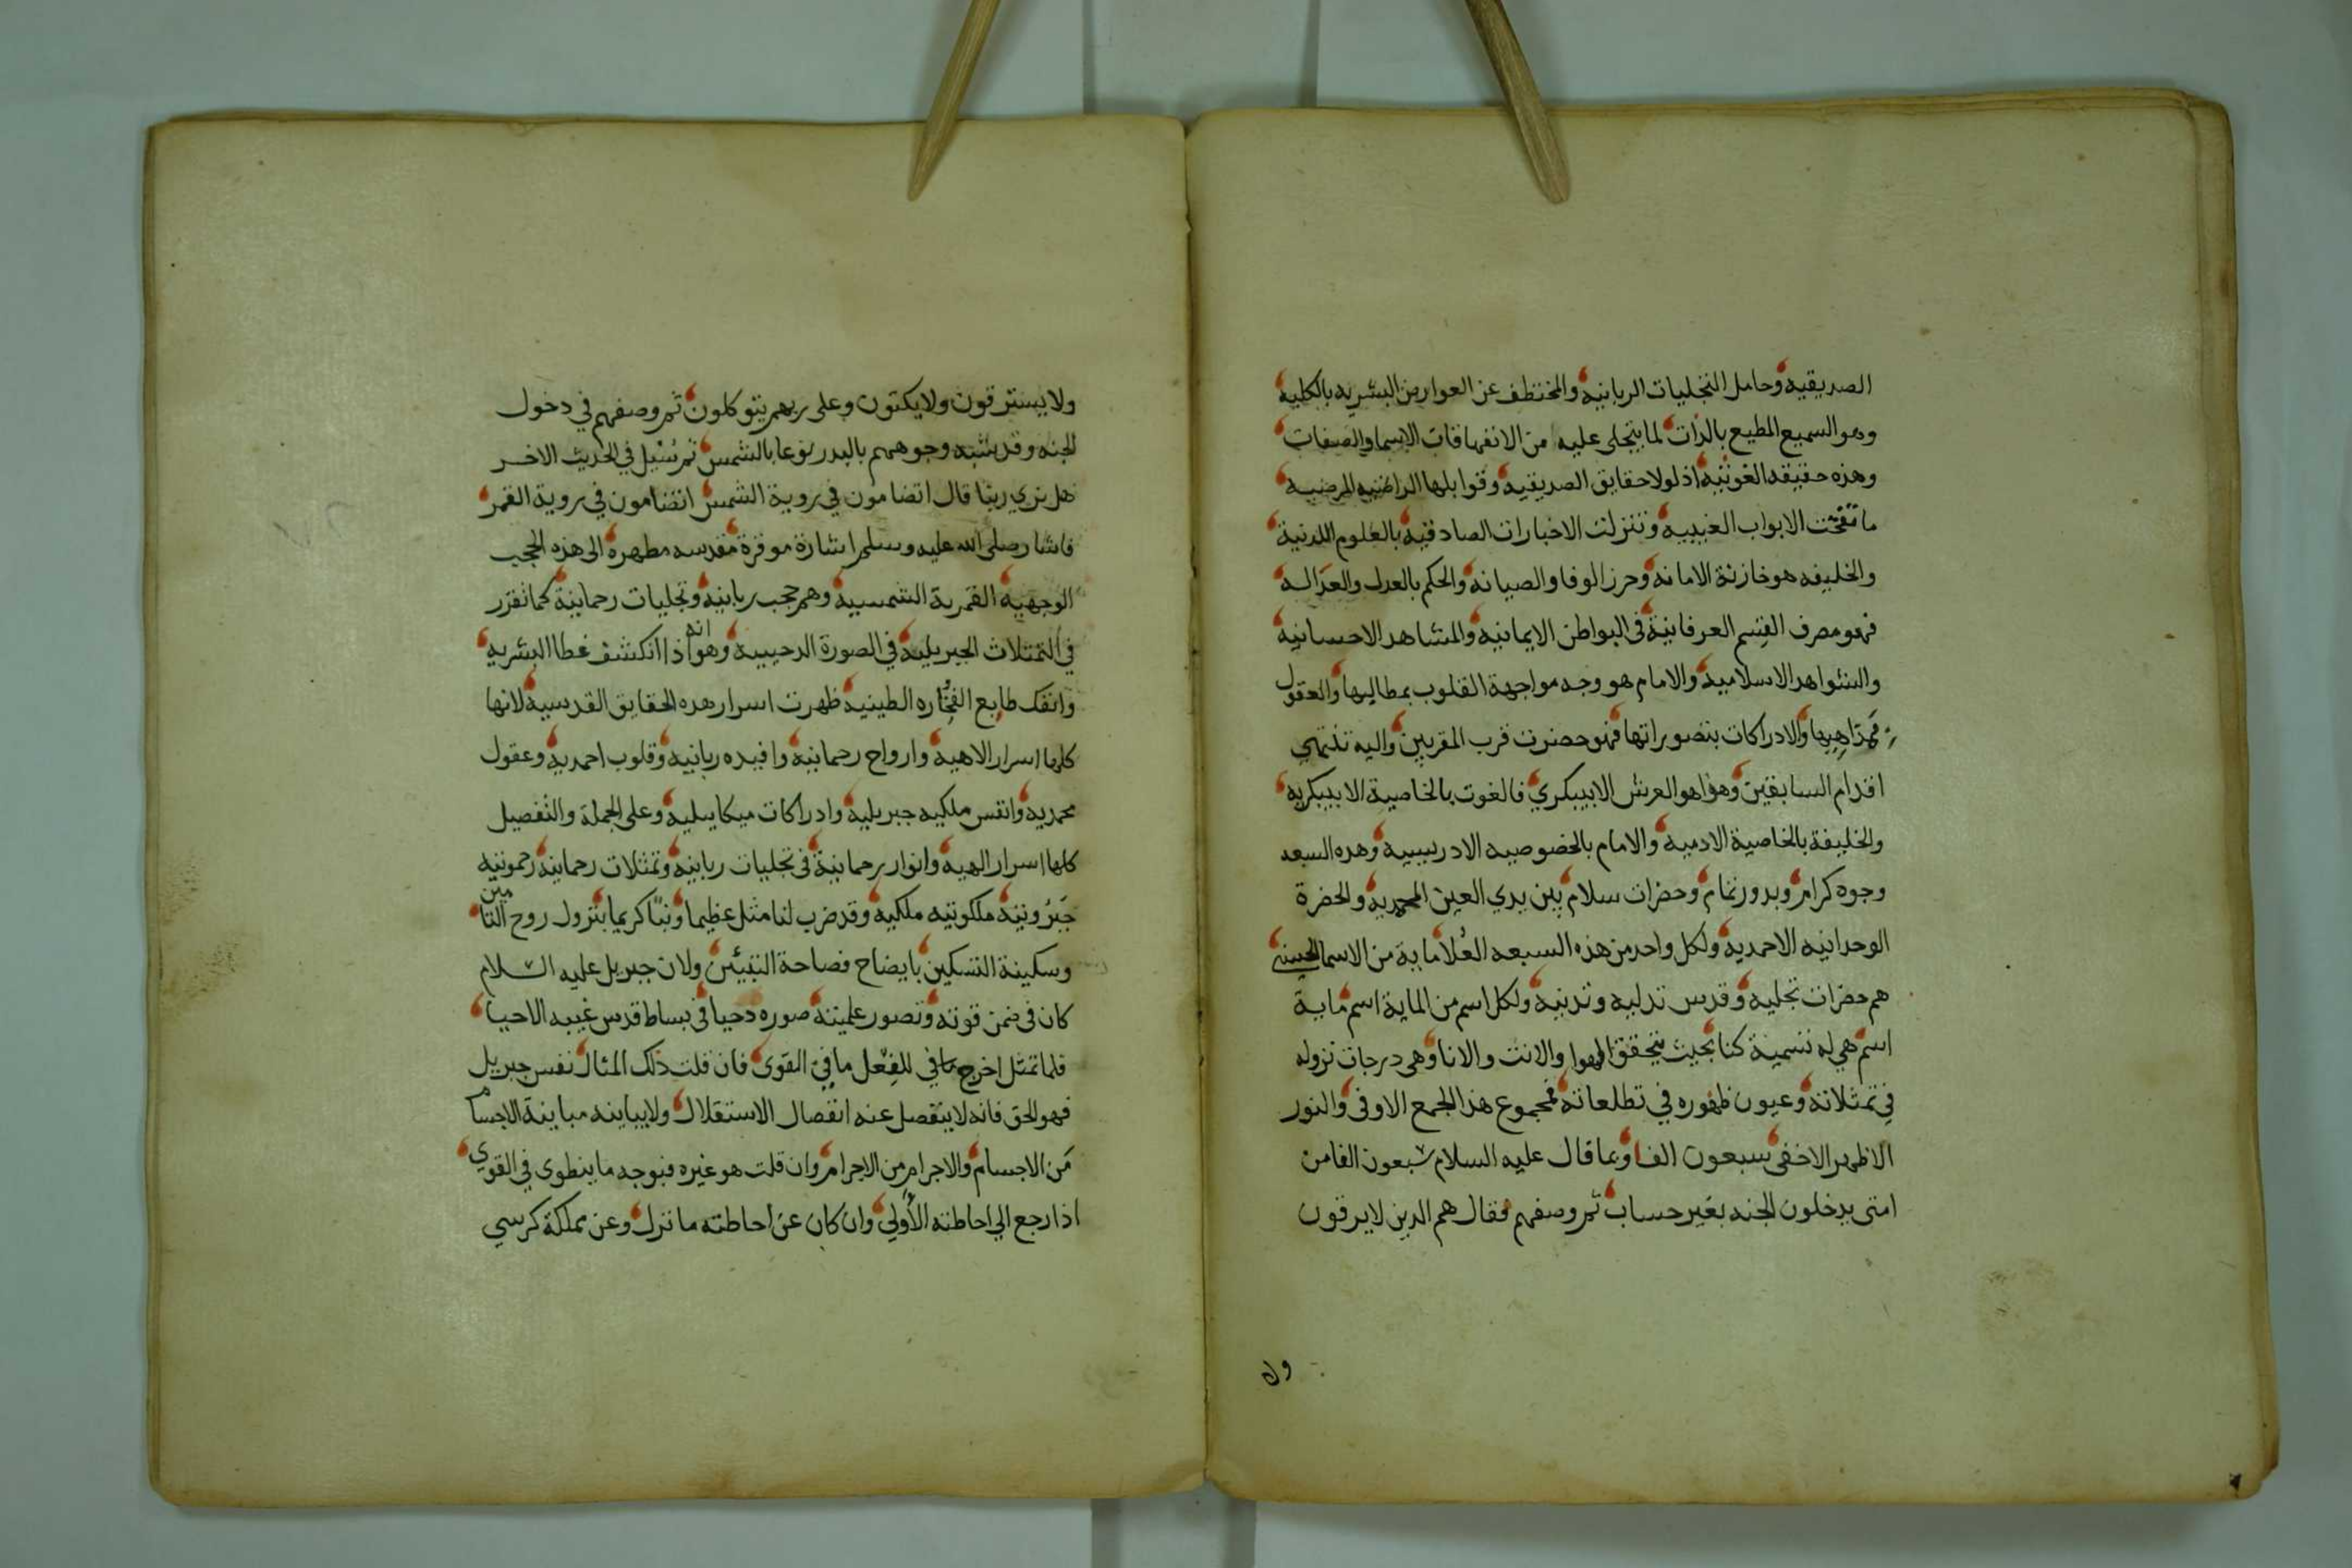 الصديقيه وحامل التجليات الربانيه والمختطف عن العوارض البشريه بالكليه
وهو السميع المطيع بالذات لما يتجلى عليه من الانفهاقات الاسما والصفات
وهذه حقيقه الغوثيه اذ لولا حقايق الصديقيه وقوابلها الراضيه المرضيه
ما تفتحت الابواب الغيبيه وتنزلت الاخبارات الصادقيه بالعلوم اللدنية
والخليفه هو خازنة الامانه وحرز الوفا والصيانه والحكم بالعدل والعداله
فهو مصرف القسم العرفانية في البواطن الايمانيه والمشاهد الاحسانيه
والشواهد الاسلاميه والامام هو وجه مواجهة القلوب بمطالبها والعقول
بمذاهبها والادراكات بتصوراتها فهو حضرت قرب المقربين واليه تنتهي
اقدام السابقين وهواهو العرش الابيبكري فالغوث بالخاصية الابيبكريه
والخليفة بالخاصية الادميه والامام بالخصوصيه الادريسيه وهده السبعه
وجوه كرام وبدور تمام وحضرات سلام بين يدي العين المحمديه والحضرة
الوحدانيه الاحمديه ولكل واحد من هذه السبعه العلا ماية من الاسما الحسنى
هم حضرات تجليه وقدس تدليه وتدنيه ولكل اسم من الماية اسم ماية
اسم هي له تسمية كنا بحيث يتحقق الهوا والانت والانا وهي درجات نزوله
في تمثلاته وعيون ظهوره في تطلعاته فمجموع هذا الجمع الاوفى والنور
الاظهر الاخفى سبعون الفا وبما قال عليه السلام سبعون الفا من
امتى يدخلون الجنه بغير حساب ثم وصفهم فقال هم الدين لا يرقون
ولا
ولا يسترقون ولا يكتوون وعلى ربهم يتوكلون ثم وصفهم في دخول
الجنه وقد شبه وجوههم بالبدر نوعا بالشمس ثم سئل في الحديث الاخر
هل نري ربنا قال اتضامون في روية الشمس اتضامون في روية القمر
فاشار صلى الله عليه وسلم اشارة موقرة مقدسه مطهره الى هذه الحجب
الوجهيه القمرية الشمسيه وهم حجب ربانيه وتجليات رحمانية كما تقرر
في التمثلات الجبريليه في الصورة الدحييه وهو انه اذا انكشف غطا البشريه
وانفك طابع الفخاره الطينيه ظهرت اسرار هده الحقايق القدسية لانها
كلها اسرار الاهيه وارواح رحمانيه وافيده ربانيه وقلوب احمديه وعقول
محمديه وانفس ملكيه جبريليه وادراكات ميكاييليه وعلى الجملة والتفصيل
كلها اسرار الهيه وانوار رحمانية في تجليات ربانيه وتمثلات رحمانية رحموتيه
جبروتية ملكوتيه ملكيه وقد ضرب لنا مثل عظيما ونبأ كريما بنزول روح التامين
وسكينة التسكين بايضاح فصاحة التبيين ولان جبريل عليه السلام
كان في ضمن قوته وتصور علميته صوره دحيا في بساط قدس غيبه الاحيا
فلما تمثل اخرج مافي للفعل ما في القوى فان قلت ذلك المثال نفس جبريل
فهو الحق فانه لا ينفصل عنه انفصال الاستقلال ولا يباينه مباينة الاجسام
من الاجسام والاجرام من الاجرام وان قلت هو غيره فبوجه ما ينطوى في القوي
اذا رجع الي احاطته الأولي وان كان عن احاطته ما تنزل وعن مملكة كرسي